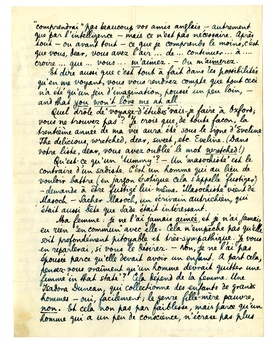 "comprendrai" pas beaucoup vos amis anglais – autrement
que par l'intelligence – mais ce n'est pas nécessaire. Après
tout – ou avant tout – ce que je comprends le moins, c'est
que vous, dear, vous avez l'air... de... continuer... à...
croire... que... vous... m'aimez. – Ou m'aimerez.
Et dire aussi que c'est tout à fait dans les possibilités
qu'en me voyant, vous vous rendrez compte que tout ceci
n'a été qu'un jeu d'imagination, poussé un peu loin, –
and that you won't love me at all.
Quel drôle de "voyage d'études" vais-je faire à Oxford,
vous ne trouvez pas? Je crois que de toute façon, la
trentième année de ma vie aura été sous le signe d'Eveline
The delicious, wretched, dear, sweet, etc. Eveline. (Dans
votre liste, dear, vous avez oublié le mot wretched!)
Qu'est ce qu'un "tummy"? – Un "masochiste" est le
contraire d'un sadiste. C'est un homme qui au lieu de
vouloir battre (en jargon érotique cela s'appelle fustiger)
– demande à être fustigé lui-même. Masochiste vient de
Masoch – Sacher Masoch, un écrivain autrichien, qui
était aussi bête que Sade était intéressant.
Ma femme: je ne l'ai jamais aimée, et je n'ai jamais
eu rien en commun avec elle. Cela n'empêche pas qu'elle
soit profondément pitoyable et très sympathique. Je vous
en reparlerai, si vous le désirez. – Non, je ne l'ai pas
épousée parce qu'elle devait avoir un enfant. A part cela,
pensez-vous vraiment qu'un homme devrait quitter une
femme in that state? Cela dépend de la femme. Une
Isadora Duncan, qui collectionne des enfants de grands
hommes – oui, facilement; le genre fille-mère pauvre,
non. Et cela non pas par faiblesse, mais parce qu'un
homme qui a un peu de conscience, n'écrase pas plus